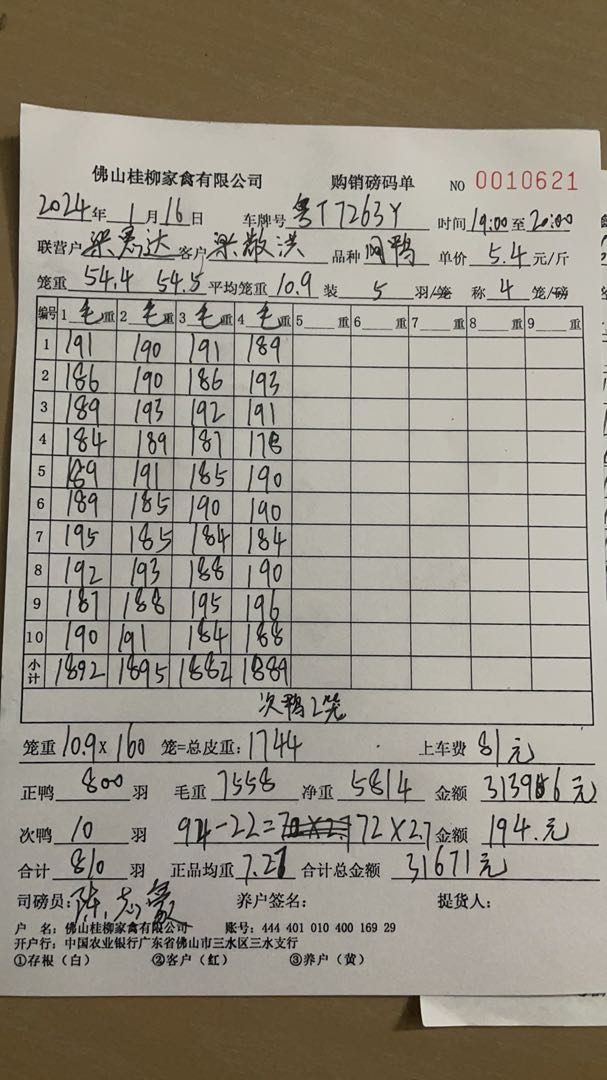 佛山桂柳家禽有限公司 购销磅码单 NO 0010621
2024年 1月16日 车牌号 粤T7263Y 时间 19:00至20:00
联营户 梁惠达 客户 梁散洪 品种 阿鸭 单价 5.4 元/斤
笼重 54.4 54.5 平均笼重 10.9 装 5 羽/笼 称 4 笼/磅
编号 1 毛 重 2 毛 重 3 毛 重 4 毛 重 5 重 6 重 7 重 8 重 9 重
1 191 190 191 189
2 186 190 186 193
3 189 193 192 191
4 184 189 187 178
5 189 191 185 190
6 189 185 190 190
7 195 185 184 184
8 192 193 188 190
9 187 188 195 196
10 190 191 184 188
小计 1892 1895 1882 1889
次鸭2笼
笼重 10.9×160 笼=总皮重: 1744 上车费 81元
正鸭 800 羽 毛重 7558 净重 5814 金额 31396 元
次鸭 10 羽 94-22=72×2.7 金额 194.元
合计 810 羽 正品均重 7.27 合计总金额 31671元
司磅员: 陈志 养户签名: 提货人:
户 名: 佛山桂柳家禽有限公司 账号: 444 401 010 400 169 29
开户行: 中国农业银行广东省佛山市三水区三水支行
①存根（白） ②客户（红） ③养户（黄）